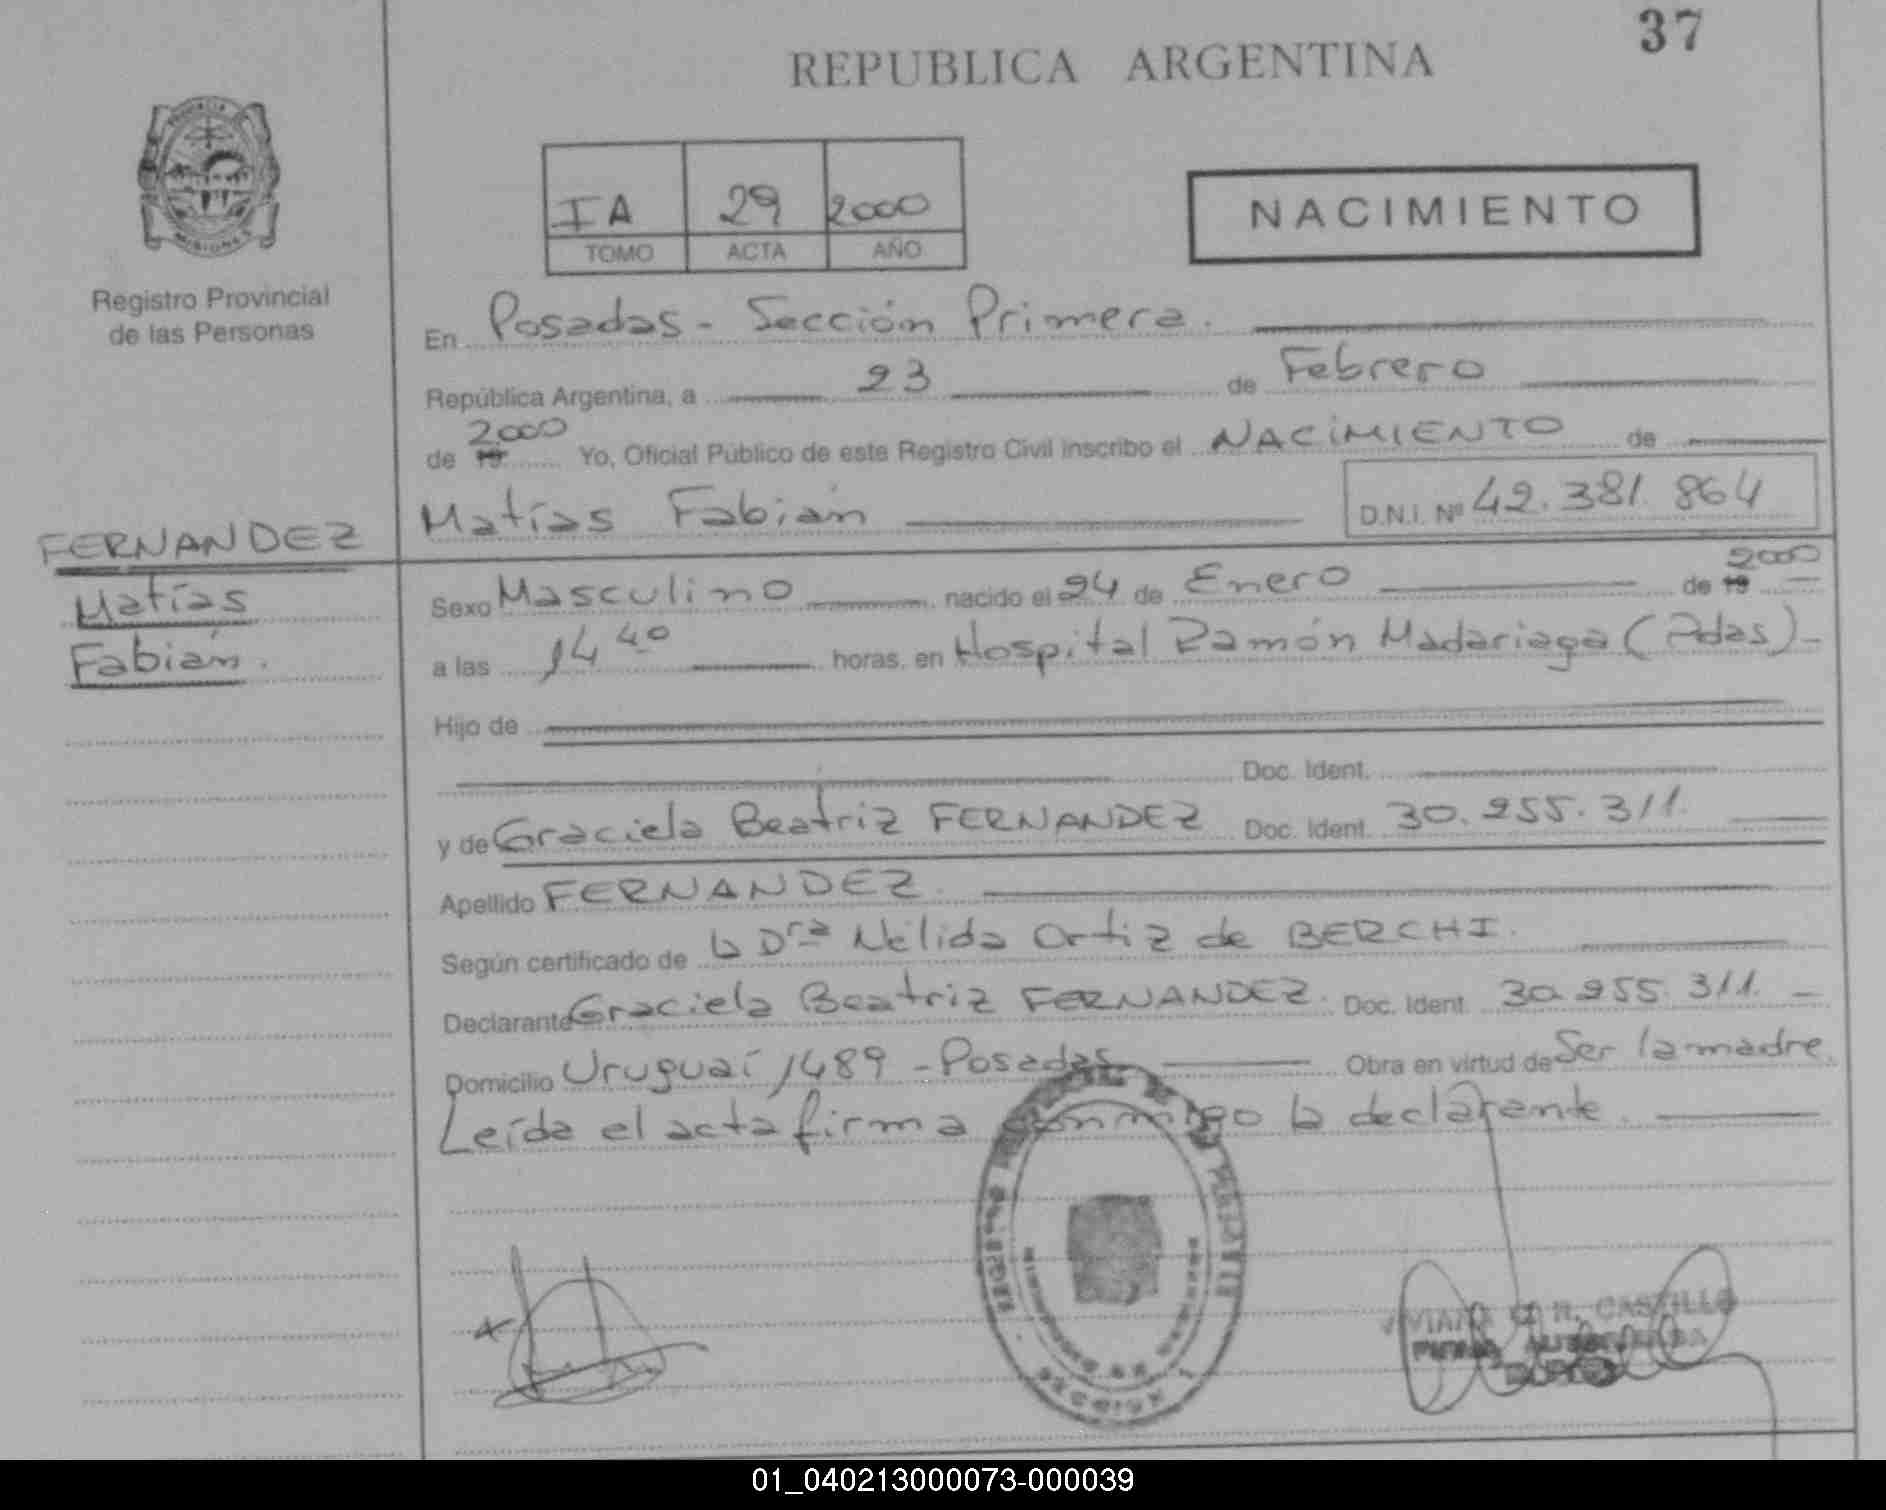 37
REPUBLICA ARGENTINA
IA 29 2000
TOMO ACTA AÑO
NACIMIENTO
PROVINCIA
MISIONES
Registro Provincial
de las Personas
En Posadas - Sección Primera.
República Argentina, a 23 de Febrero
de 19 2000 Yo, Oficial Público de este Registro Civil inscribo el NACIMIENTO de
Matías Fabián D.N.I. Nº 42.381.864
FERNANDEZ
Matías
Fabián.
Sexo Masculino nacido el 24 de Enero de 19 2000
a las 14 40 horas, en Hospital Ramón Madariaga (Pdas) -
Hijo de
Doc. Ident.
y de Graciela Beatriz FERNANDEZ Doc. Ident. 30.255.311.
Apellido FERNANDEZ.
Según certificado de la Dra Nélida Ortiz de BERCHI.
Declarante Graciela Beatriz FERNANDEZ. Doc. Ident. 30.255.311. -
Domicilio Uruguaí 1489 - Posadas Obra en virtud de Ser la madre.
Leída el acta firma conmigo la declarante.
CASTILLO
01_040213000073-000039